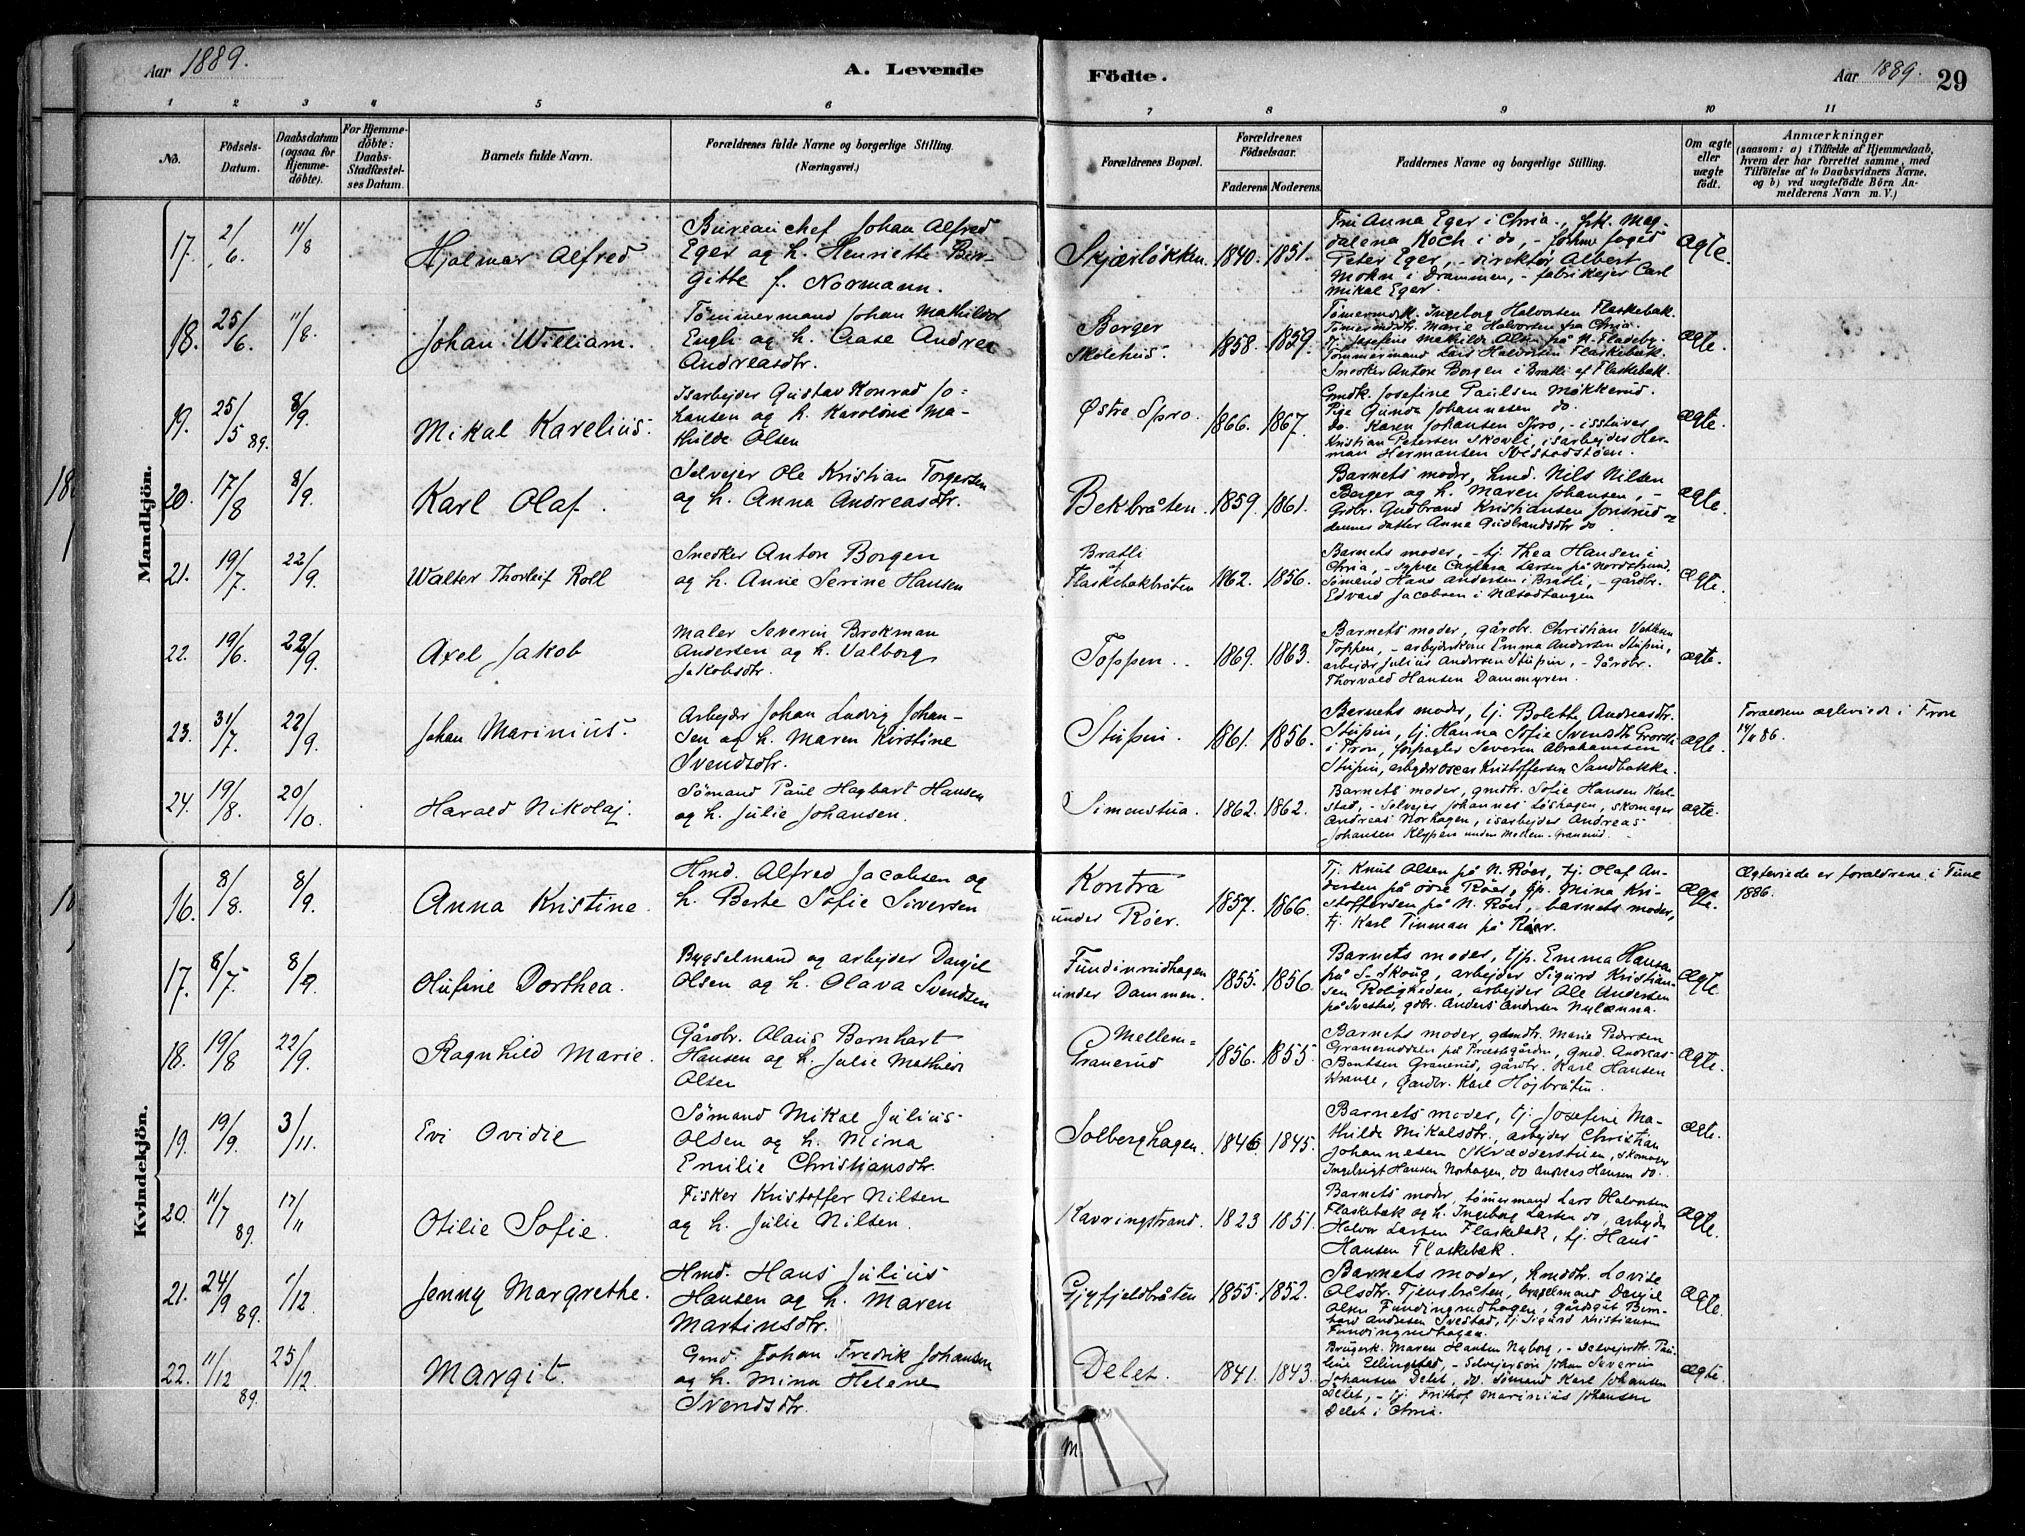 Aar 1889.
A. Levende
Födte.
Aar 1889.
29
1 2 3 4 5 6 7 8 9 10 11
No.
Födsels-
Datum.
Daabsdatum
(ogsaa for
Hjemme-
döbte).
For Hjemme-
döbte:
Daabs-
Stadfæstel-
ses Datum.
Barnets fulde Navn.
Forældrenes fulde Navne og borgerlige Stilling.
(Næringsvei.)
Forældrenes Bopæl.
Forældrenes
Födselsaar.
Faderens. Moderens.
Faddernes Navne og borgerlige Stilling.
Om ægte
eller
uægte
født.
Anmærkninger
(saasom: a) i Tilfælde af Hjemmedaab,
hvem der har forrettet samme, med
Tilföielse af to Daabsvidners Navne.
og b) ved uægtefödte Börn An-
melderens Navn m. V.)
Mandkjön.
17. 2/6 11/8
Hjalmar Alfred
Bureauchef Johan Alfred
Eger og h. Henriette Bir-
gitte f. Normann.
Skjærløkken 1840. 1851.
Fru Anna Eger i Chria., frk. Mag-
dalena Koch i do,
Peter Eger, - direktør Albert
Mohn i Drammen, - fabrikejer Carl
Mikal Eger.
Ægte.
18. 25/6 11/8
Johan William.
Tömmermand Johan Mathildus
Engh og h. Aase Andrea
Andreasdtr.
Berger
Skolehus. 1858. 1859.
Ingeborg Halvorsen Flaskebæk.
Marie Halvorsen fra Chria.
Josefine Mathilde Olsen på N. Fladeby.
Tömmermand Lars Halvorsen Flaskebæk.
Snedker Anton Borgen i Bratli af Flaskebæk.
ægte.
19. 25/5 89. 8/9
Mikal Karelius.
Isarbejder Gustav Konrad Jo-
hansen og h. Karoline Ma-
thilde Olsen
Østre Spro. 1866. 1867.
Gmdk. Josefine Paulsen Møkkerud.
Pige Gunda Johannesen do.
do. Karen Johansen Spro,
Kristian Petersen Skovli, isarbejder Her-
man Hermansen
Ægte.
20. 17/8 8/9
Karl Olaf.
Selvejer Ole Kristian Torgersen
og h. Anna Andreasdtr.
Bekbråten. 1859. 1861.
Barnets moder, hmd. Nils Nilsen
Berger og h. Maren Johansen, -
Grdbr. Gudbrand Kristiansen
dennes datter Anna Gudbrandsdtr do.
ægte.
21. 19/7 22/9
Walter Thorleif Roll
Snedker Anton Borgen
og h. Anne Serine Hansen
Bratli
af
Flaskebækbråten 1862. 1856.
Barnets moder, - tj. Thea Hansen i
Chria, Larsen på Nordstrand,
Sømand Hans Andersen i Bratli, - gårdbr.
Edvard Jacobsen i Næsodtangen
Ægte.
22. 19/6. 22/9
Axel Jakob
Maler Severin Brokman
Andersen og h. Valborg
Jakobsdtr.
Toppen. 1869. 1863.
Barnets moder, gårdbr. Christian
Toppen, - arbejderkone Emma Andersen Stupin,
arbejder Julius Andersen Stupin, - Gårdbr.
Thorvald Hansen Dammyren.
ægte.
23. 31/7. 22/9.
Johan Marinius.
Arbejder Johan Ludvig Johan-
sen og h. Maren Kirstine
Svendsdtr.
Stupin. 1861. 1856.
Barnets moder, tj. Bolette Andreasdtr.
Stupin, tj. Hanna Sofie Svendsdtr
i Fron, forpagter Severin Abrahamsen
Stupin, arbejder Oscar Kristoffersen Sandbakke.
ægte.
Forældrene ægteviede i Fron
86.
24. 19/8. 20/10.
Harald Nikolaj.
Sömand Paul Hagbart Hansen
og h. Julie Johansen.
Simenstua. 1862. 1862.
Barnets moder, gmdtr. Sofie Hansen Karl-
stad, - Selvejer Johannes Løshagen, skomager
Andreas Norhagen, isarbejder Andreas
Johansen Klypen under Mellem-Granerud.
ægte.
Kvindekjön.
16. 8/8. 8/9.
Anna Kristine.
Hmd. Alfred Jacobsen og
h. Berte Sofie Siversen
Kontra
under Röer. 1857. 1866.
Tj. Knut Olsen på N. Röer, tj. Olaf An-
dersen på Röer, tjp. Mina Kri-
stoffersen på N. Röer, barnets moder,
tj. Karl Tinman på Röer.
Ægte.
Ægteviede er forældrene i Tune
1886.
17. 8/7. 8/9.
Olufine Dorthea.
Bygselmand og arbejder Danjel
Olsen og h. Olava Svendsen
Fundinrudhagen
under Dammen. 1855. 1856.
Barnets moder, tjp. Emma Hansen
på S. Skoug, arbejder Sigurd Kristian-
sen Roligheden, arbejder Ole Andersen
på Svestad, gdbr. Anders Andersen Nylænna.
Ægte.
18. 19/8 22/9.
Ragnhild Marie.
Gårdbr. Olaus Bernhart
Hansen og h. Julie Mathilde
Olsen
Mellem-
Granerud 1856. 1855.
Barnets moder, gmdtr. Marie Pedersen
Graneruddalen på Præstegården, gmd. Andreas
Bentsen Granerud, gårdbr. Karl Hansen
Wrange, Gårdbr. Karl Højbråten.
Ægte.
19. 19/9. 3/11.
Evi Ovidie
Sömand Mikal Julius
Olsen og h. Mina
Emilie Christiansdtr.
Solberghagen. 1846. 1845.
Barnets moder, tj. Josefine Ma-
thilde Mikalsdtr., arbejder Christian
Johannesen Skrædderstuen, skomager
Ingebrigt Hansen Norhagen, do Andreas Hansen do.
Ægte.
20. 11/7 89. 17/11
Otilie Sofie.
Fisker Kristoffer Nilsen
og h. Julie Nilsen.
Kavringstrand. 1823 1851.
Barnets moder, tømmermand Lars Halvorsen
Flaskebæk og h. Ingeborg Larsen do, arbejder
Halvor Larsen Flaskebæk, tj. Hans
Hansen Flaskebæk.
Ægte.
21. 24/9 89. 1/12.
Jenny Margrethe.
Hmd. Hans Julius
Hansen og h. Maren
Martinsdtr.
Gjyfjeldbråten 1855. 1852.
Barnets moder, hmdtr. Lovise
Olsdtr. Tjernsbråten, Danjel
Olsen Fundingrudhagen, gårdsgut Bern-
hard Andresen Svestad, tj. Sigurd Kristiansen
Fundingrudhagen.
Ægte.
22. 11/12 89. 25/12.
Margit.
Gmd. Johan Fredrik Johansen
og h. Mina Helene
Svendsdtr.
Delet. 1841. 1843.
Brugerk. Maren Hansen Nyborg, - selvejerdtr. Pau-
line Ellingstad, - Selvejersøn Johan Severin
Johansen Delet, do. Sömand Karl Johansen
Delet, - tj. Frithof Marinius Johansen
Delet i Chria.
Ægte.
M.